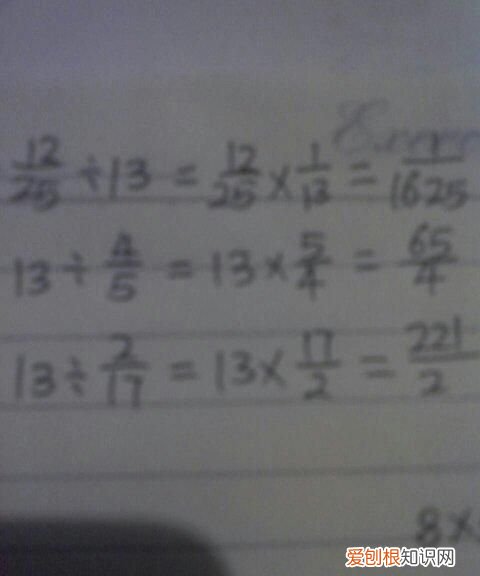 12/25 ÷ 13 = 12/25 × 1/13 = 1/1625
13 ÷ 4/5 = 13 × 5/4 = 65/4
13 ÷ 2/17 = 13 × 17/2 = 221/2
8×
爱刨根知识网